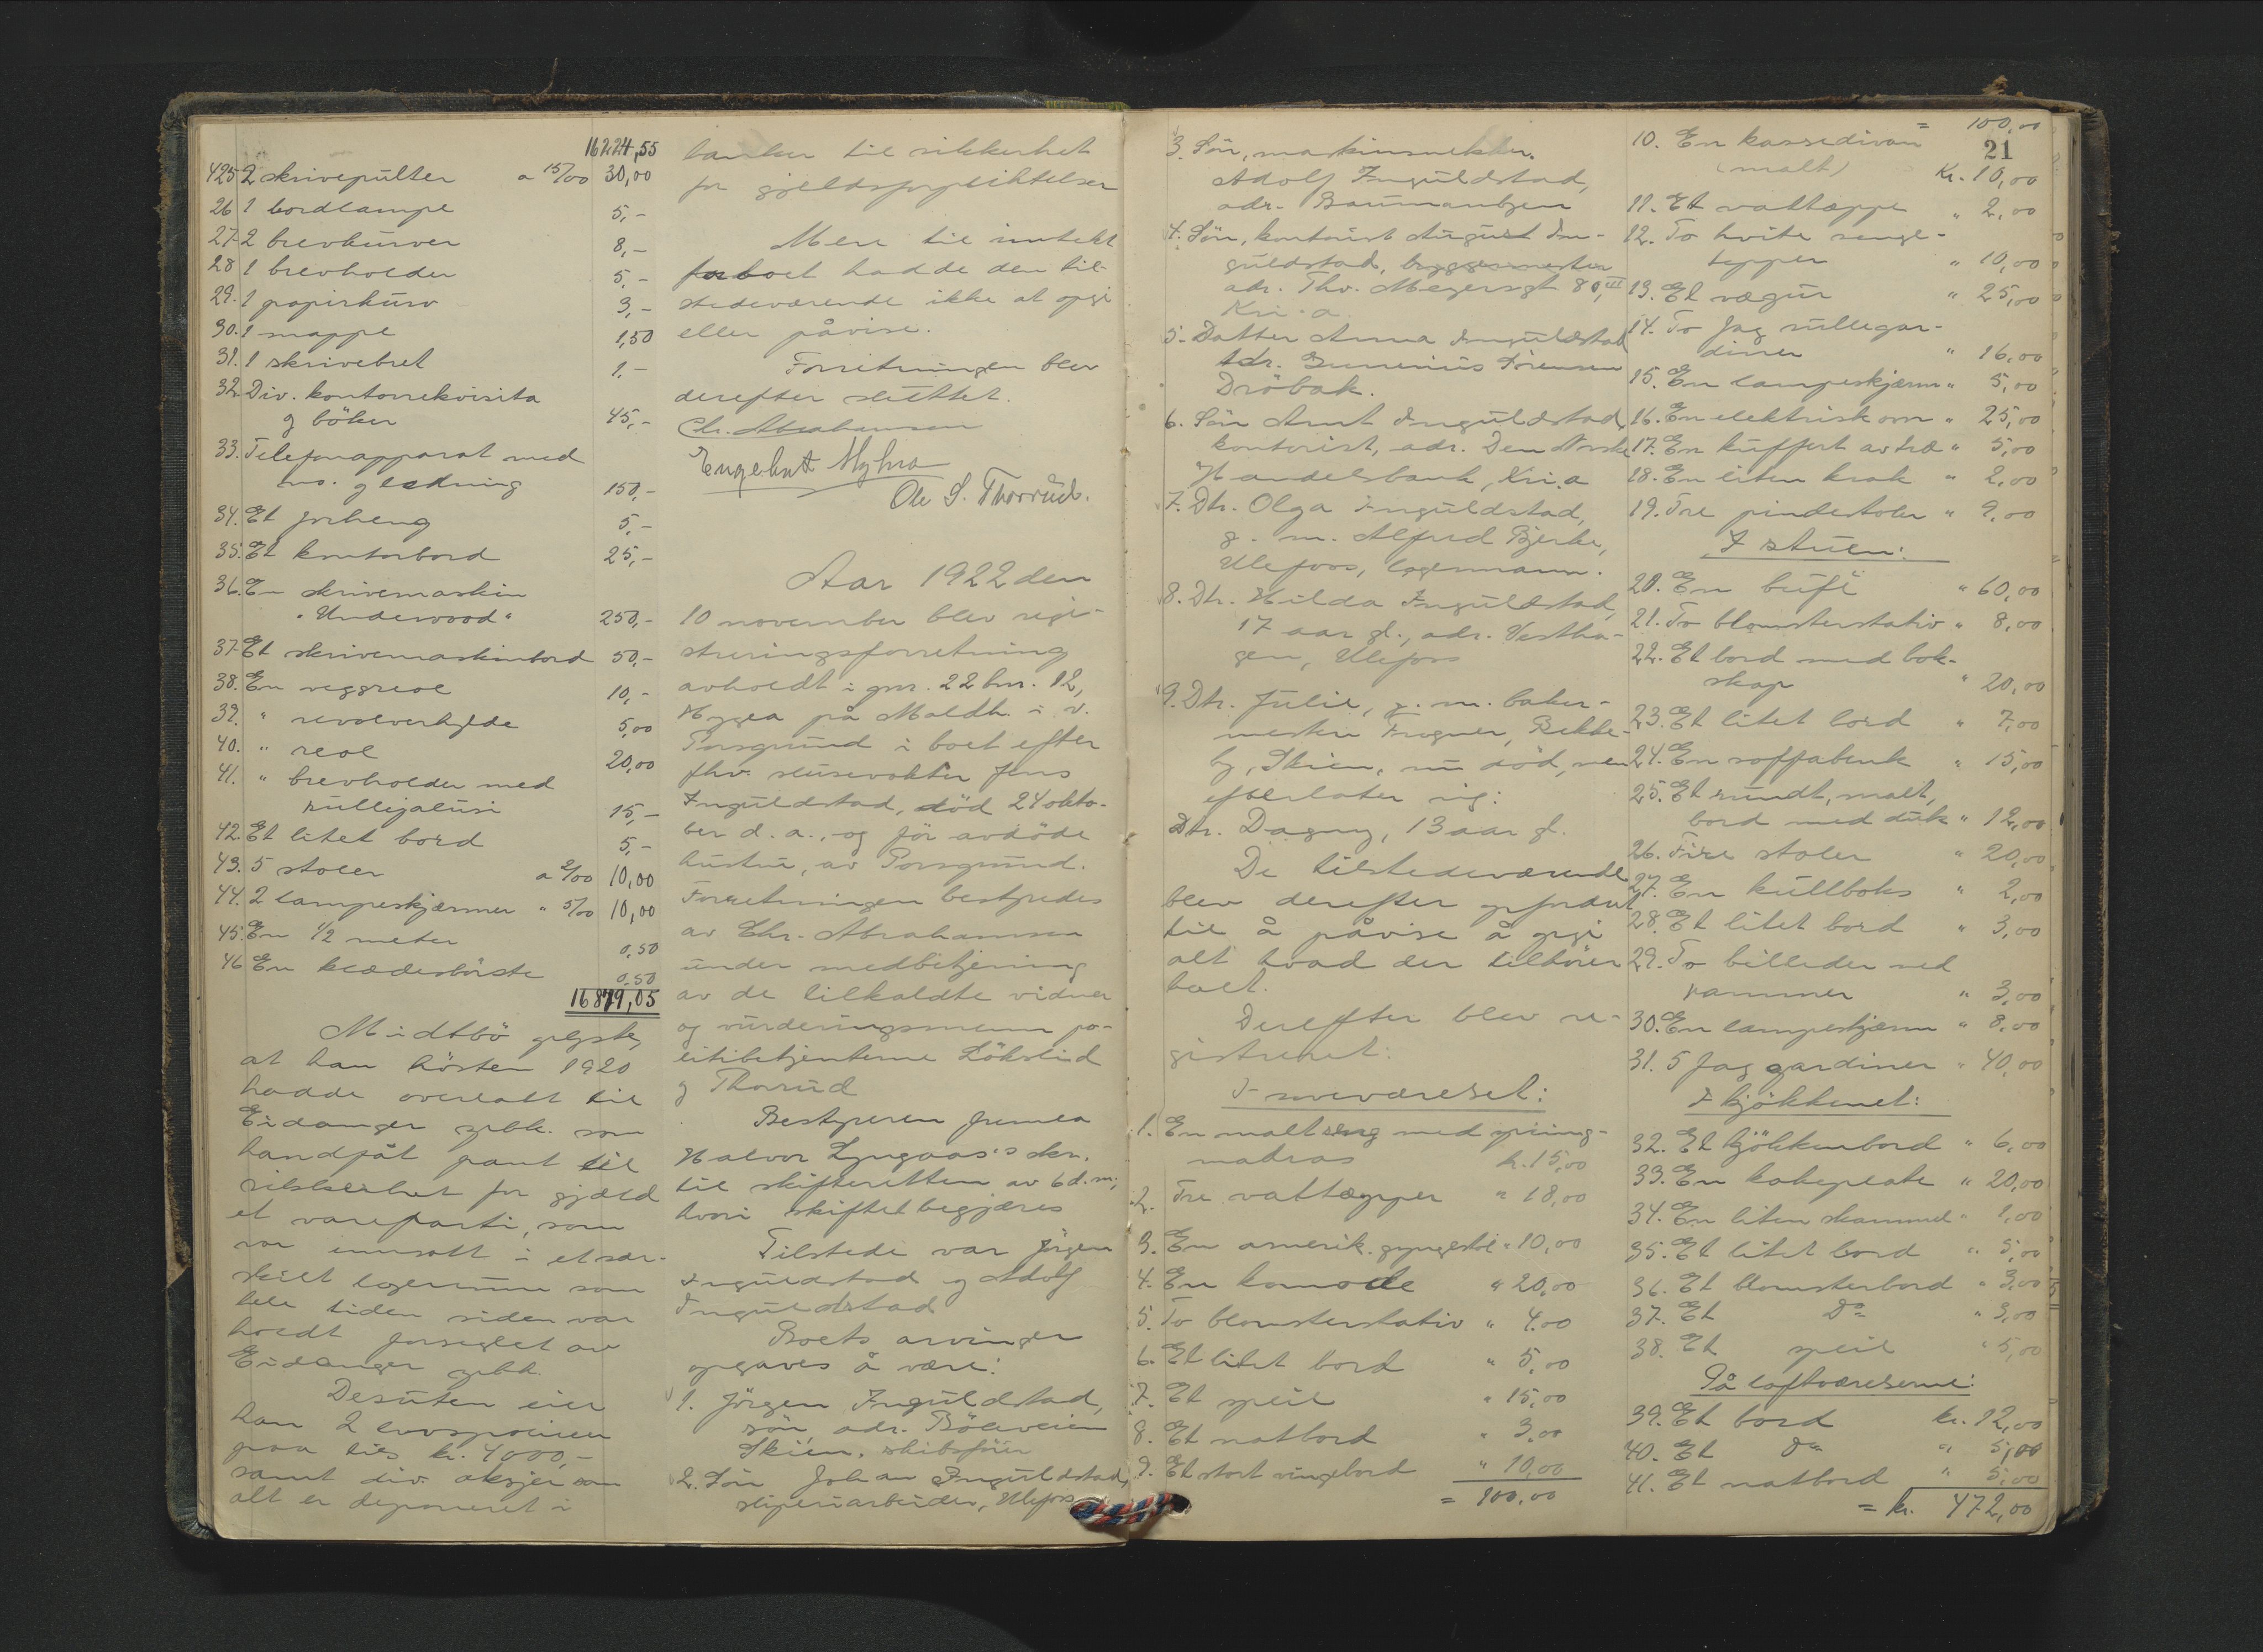 16224,55
425 2 skrivepulter a 15/00 30,00
26 1 bordlampe 5,-
27. 2 brevkurver 8,-
28 1 brevholder 5,-
29. 1 papirkurv 3,-
30. 1 mappe 1,50
31. 1 skrivebret 1,-
32. Div. kontorrekvisita
g böker 45,-
33. Telefonapparat med
no. g ledning 150,-
34. Et forheng 5,-
35. Et kontorbord 25,-
36. En skrivemaskin
"Underwood" 250,-
37. Et skrivemaskinbord 50,-
38. En veggreol 10,-
39. " revolverhylde 5,00
40. " reol 20,00
41. " brevholder med
rullejalusi 15,-
42. Et litet bord 5,-
43. 5 stoler a 2/00 10,00
44. 2 lampeskjærmer " 5/00 10,00
45. En 1/2 meter 0,50
46 En klædesbörste 0,50
16879,05
Midtbö oplyste,
at han hösten 1920
hadde overlatt til
Eidanger spbk. som
handfåt pant til
sikkerhet for gjæld
et vareparti, som
var innsatt i et sær-
skilt lagerrum som
hele tiden siden var
holdt forseglet av
Eidanger spbk.
Desuten eier
han 2 livspoliser
paa tils kr. 4000,-
samt div. aksjer som
alt er deponeret i
banker til sikkerhet
for gjeldsforpliktelser
Mere til inntekt
for boet hadde den til-
stedeværende ikke at opgi
eller påvise.
Forretningen blev
derefter sluttet.
Chr. Abrahamsen
Engebret Myhra
Ole S. Thorrud.
Aar 1922 den
10 november blev regi-
streringsforretning
avholdt i gnr. 22 bnr. 12,
Hygea på Moldh. i v.
Porsgrund i boet efter
fhv. slusevokter Jens
Inguldstad, död 24 okto-
ber d. a., og för avdöde
hustru, av Porsgrund.
Forretningen bestyredes
av Chr. Abrahamsen
under medbetjening
av de tilkaldte vidner
og vurderingsmenn po-
litibetjenterne Lökslid
g Thorrud
Bestyreren fremla
Halvor Lyngaas's skr.
til skifteretten av 6 d. m.,
hvori skiftet begjæres
Tilstede var Jörgen
Inguldstad g Adolf
Inguldstad
Boets arvinger
opgaves å være:
1. Jörgen Inguldstad,
sön, adr. Böleveien
Skien, skibsförer
2. Sön Johan Inguldstad,
sliperiarbeider, Ulefoss
3. Sön, maskinmekker.
Adolf Inguldstad,
adr. Baumanbyen
4. Sön, kontorist August In-
guldstad, byggemester
adr. Thv. Meyersgt 80, III
Kri.a
5. Datter Anna Inguldstad
adr. Gunerius Sörensen
Dröbak.
6. Sön Arnt Inguldstad,
kontorist, adr. Den Norske
Handelsbank, Kri.a
7. Dtr. Olga Inguldstad,
g. m. Alfred Bjerke,
Ulefoss, lagermann.
8. Dtr. Hilda Inguldstad,
17 aar gl., adr. Vestha-
gen, Ulefoss
9. Dtr. Julie, g. m. baker-
mester Frogner, Bekke-
by, Skien, nu död, men
efterlater sig:
Dtr. Dagny, 13 aar gl.
De tilstedeværende
blev derefter opfordret
til å påvise å opgi
alt hvad der tilhörer
boet.
Derefter blev re-
gistreret:
I soveværelset:
1. En malt seng med spring-
madras kr. 15,00
2. Tre vattæpper " 18,00
3. En amerik. gyngestol " 10,00
4. En komode " 20,00
5. To blomsterstativ " 4,00
6. Et litet bord " 5,00
7. Et speil " 15,00
8. Et natbord " 3,00
9. Et stort vingebord " 10,00
= 100,00
= 100,00
21
10. En kassedivan
(malt) Kr. 10,00
11. Et vattæppe " 2,00
12. To hvite senge-
tepper " 10,00
13. Et vægur " 25,00
14. To fag rullegar-
diner " 16,00
15. En lampeskjærm " 5,00
16. En elektrisk ovn " 25,00
17. En kuffert av træ " 5,00
18. En liten krak " 2,00
19. Tre pindestoler " 9,00
I stuen:
20. En bufé " 60,00
21. To blomsterstativ " 8,00
22. Et bord med bok-
skap " 20,00
23. Et litet bord " 7,00
24. En soffabenk " 15,00
25. Et rundt, malt,
bord med duk " 12,00
26. Fire stoler " 20,00
27. En kullboks " 2,00
28. Et litet bord " 3,00
29. To billeder med
rammer " 3,00
30. En lampeskjærm " 8,00
31. 5 fag gardiner " 40,00
I kjökkenet:
32. Et kjökkenbord " 6,00
33. En kokeplate " 20,00
34. En liten skammel " 1,00
35. Et litet bord " 5,00
36. Et blomsterbord " 3,00
37. Et Do " 3,00
38. Et speil " 5,00
På loftværelserne:
39. Et bord kr. 12,00
40. Et do " 5,00
41. Et natbord " 5,00
= kr. 472,00